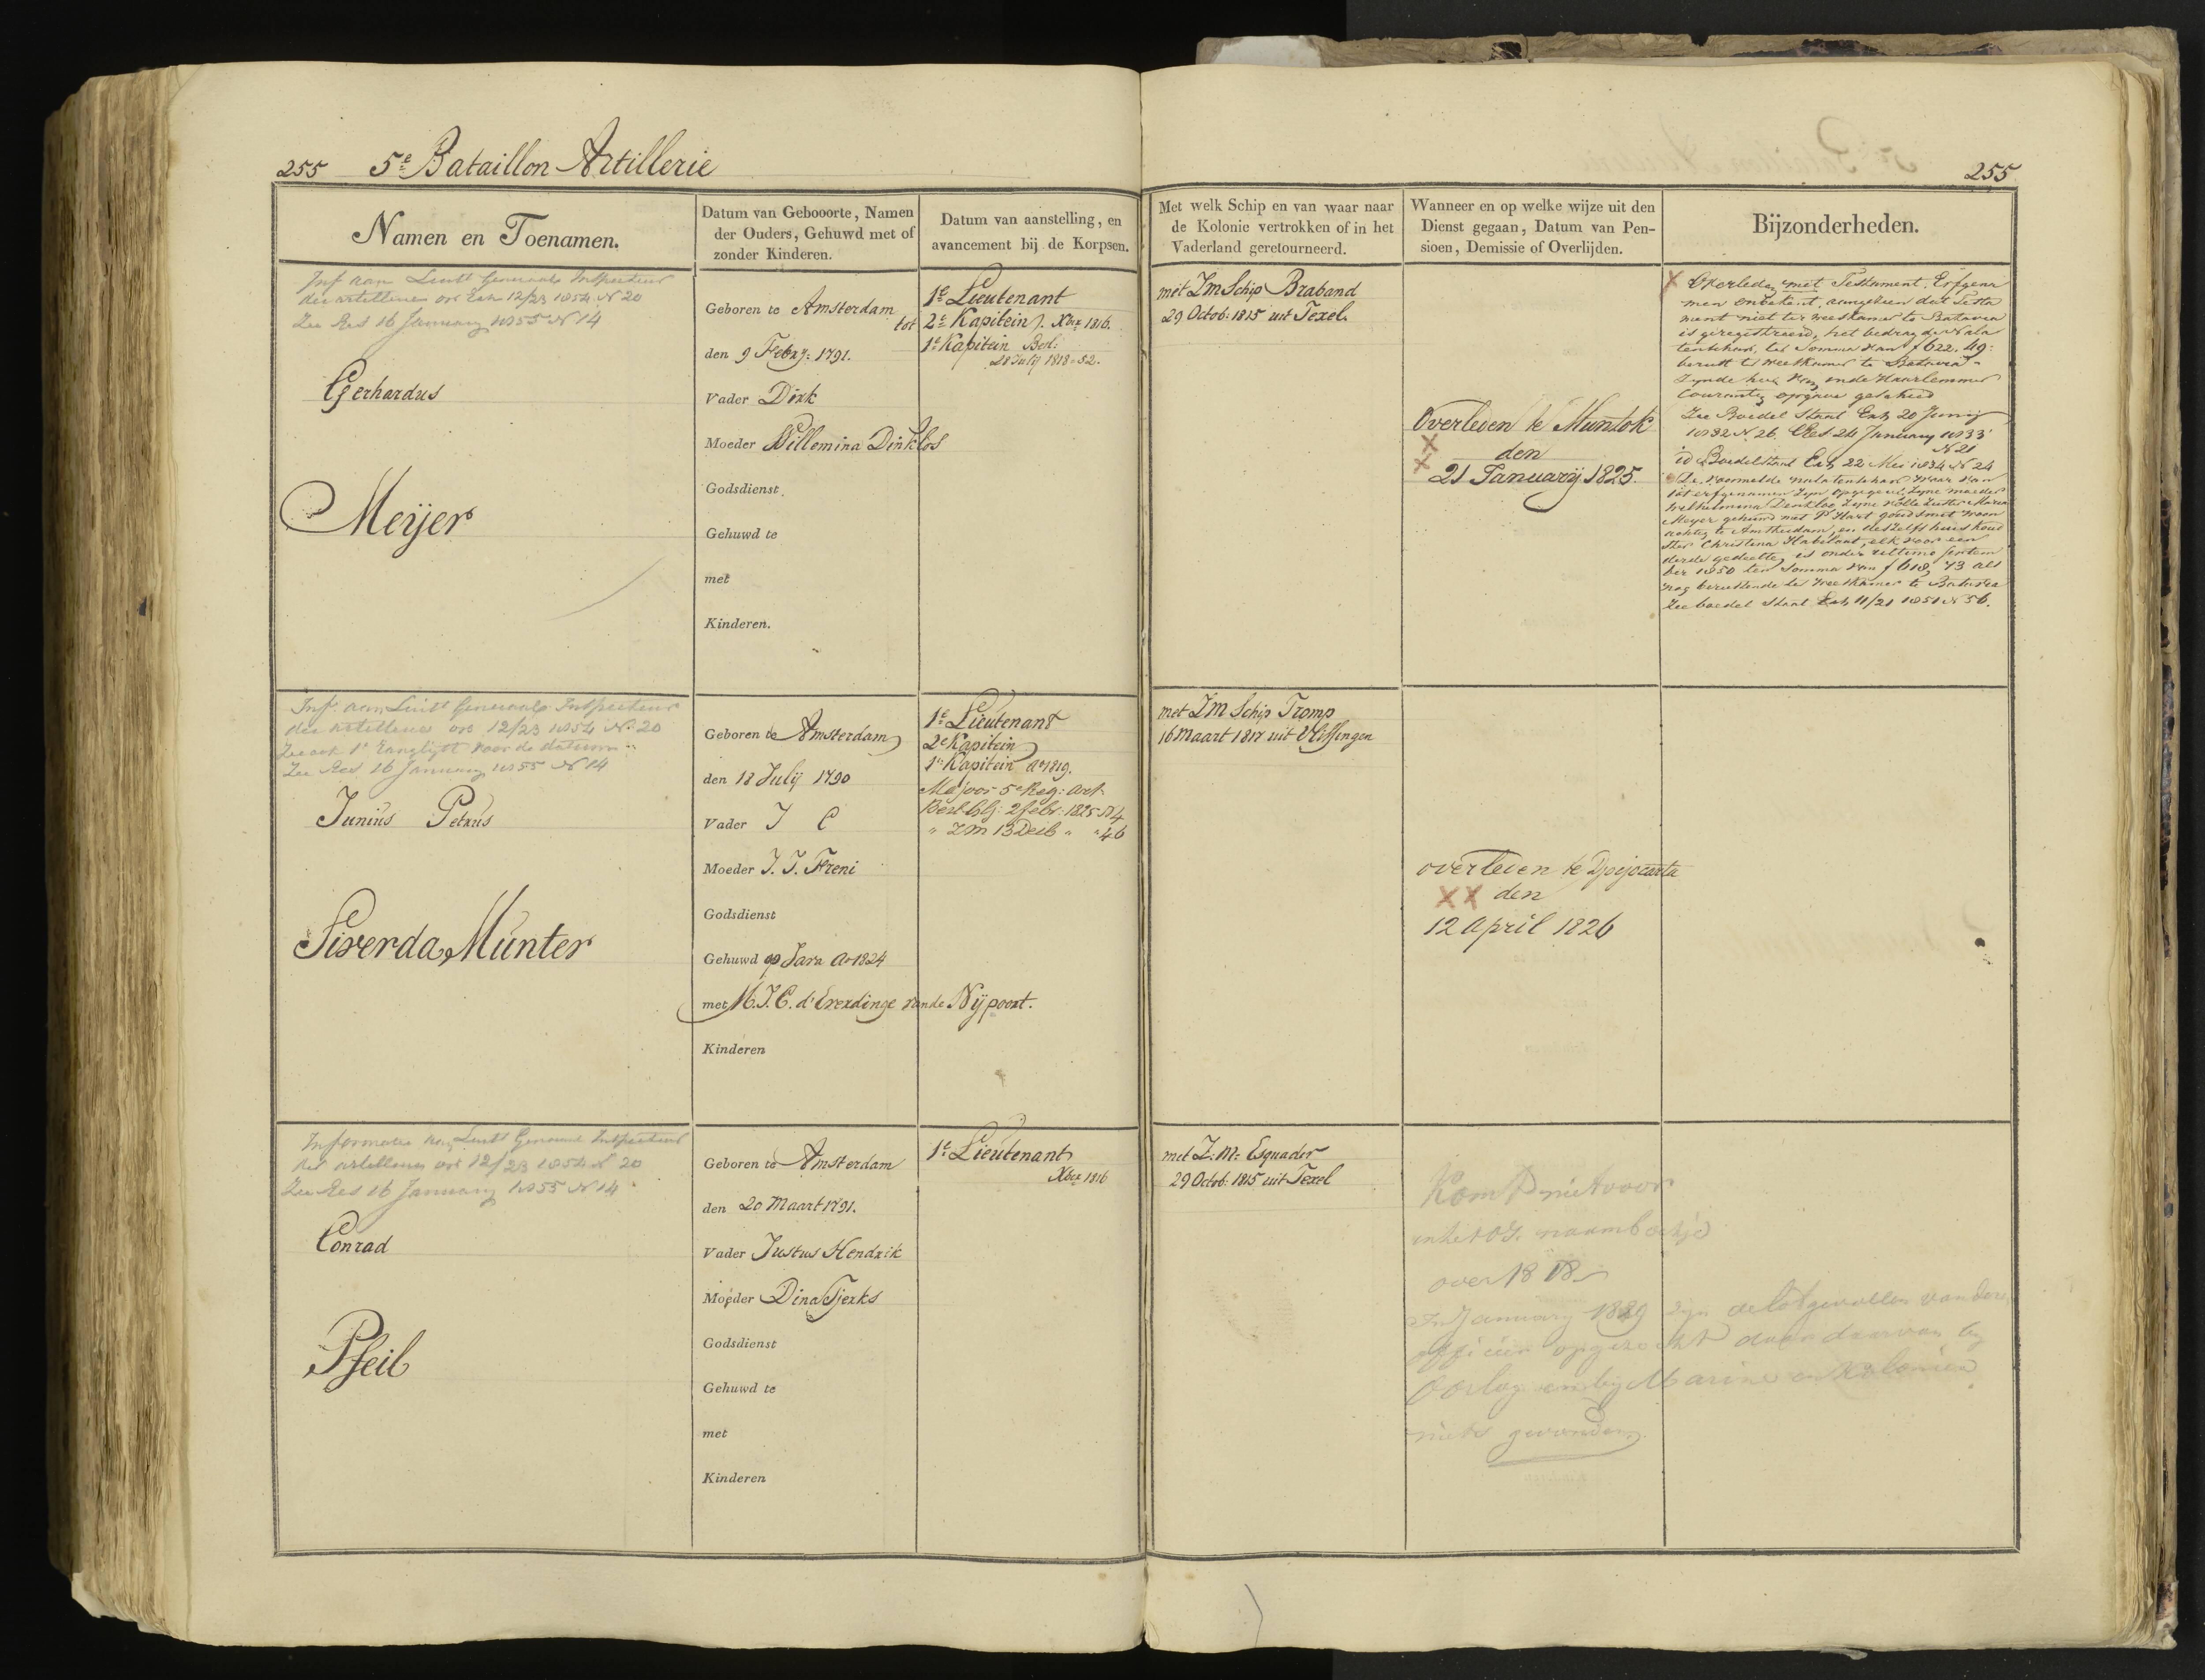 255 5e Bataillon Artillerie
255
Namen en Toenamen.
Datum van Gebooorte, Namen
der Ouders, Gehuwd met of
zonder Kinderen.
Datum van aanstelling, en
avancement bij de Korpsen.
Met welk Schip en van waar naar
de Kolonie vertrokken of in het
Vaderland geretourneerd.
Wanneer en op welke wijze uit den
Dienst gegaan, Datum van Pen-
sioen, Demissie of Overlijden.
Bijzonderheden.
Inf aan Luitt Generaal Inspecteur
der artillerie 12/23 1854 N 20
Zie Res 16 January 1855 N 14
Gerhardus
Meijer
Geboren te Amsterdam
den 9 Febry: 1791.
Vader Dirk
Moeder Willemina Dinklos
Godsdienst
Gehuwd te
met
Kinderen.
1e Lieutenant
tot 2e Kapitein Xber 1816.
1e Kapitein Besl:
28 July 1818 = 82.
met ZM Schip Braband
29 Octob: 1815 uit Texel
Overleden te Muntok
den
21 Januarij 1825.
Overleden met Testament. Erfgena
men onbekent, aangezien dat Testa
ment niet ter weeskamer te Batavia
is geregistreerd, het bedrag der Nala
tenschap, ter Somma van f 622.49:
berust ter weeskamer te Batavia
zynde hier van in de Haarlemmer
Courant opgave geschied
Zie Boedel Staat Exh 20 Junij
1832 N 26. Res. 24 January 1833
N 21
id Boedelstaat Exh 22 Mei 1834 N 24
De voormelde nalatenschap waar van
tot erfgenamen zyn opgegeven, zyne moeder
Wilhelmina Dinklos, zyne volle zuster Maria
Meyer gehuwd met P Hart goudsmit woon
achtig te Amsterdam, en deszelfs huishoud
ster Christina Habelaat, elk voor een
derde gedeelte, is onder ultimo Septem
ber 1850 ter Somma van f 618,73 als
nog berustende ter weeskamer te Batavia
Zie boedel Staat Exh 11/21 1851 N 56.
Inf aan Luitt Generaal Inspecteur
der artillerie 12/23 1854 N 20
Zie ook 1e Ranglijst voor de datums
Zie Res 16 January 1855 N 14
Junius Petrus
Siverda Munter
Geboren te Amsterdam
den 18 Julij 1790
Vader J C
Moeder J. J. Freni
Godsdienst
Gehuwd op Java Ao 1824
met M. J. C. d'Everdinge van de Nijpoort.
Kinderen
1e Lieutenant
2e Kapitein
1e Kapitein Ao 1819.
Majoor 5e Reg: Art.
Besl. 2 febr: 1825 N 4
" ZM 13 Decb " " 46
met ZM Schip Tromp
16 Maart 1817 uit Vlissingen
overleden te Djocjocarta
den
12 April 1826
Informatie aan Luitt Generaal Inspecteur
der artillerie 12/23 1854 N 20
Zie Res 16 January 1855 N 14
Conrad
Pfeil
Geboren te Amsterdam
den 20 Maart 1791.
Vader Justus Hendrik
Moeder Dina Tjerks
Godsdienst
Gehuwd te
met
Kinderen
1e Lieutenant
Xber 1816
met Z: M: Esquader
29 Octob: 1815 uit Texel
Komt niet voor
in het O.I. naamboekje
over 1818
In January 1889 zyn de lotgevallen van dezen
officier opgezocht doch daarvan by
Oorlog en by Marine en Kolonien
niets gevonden.